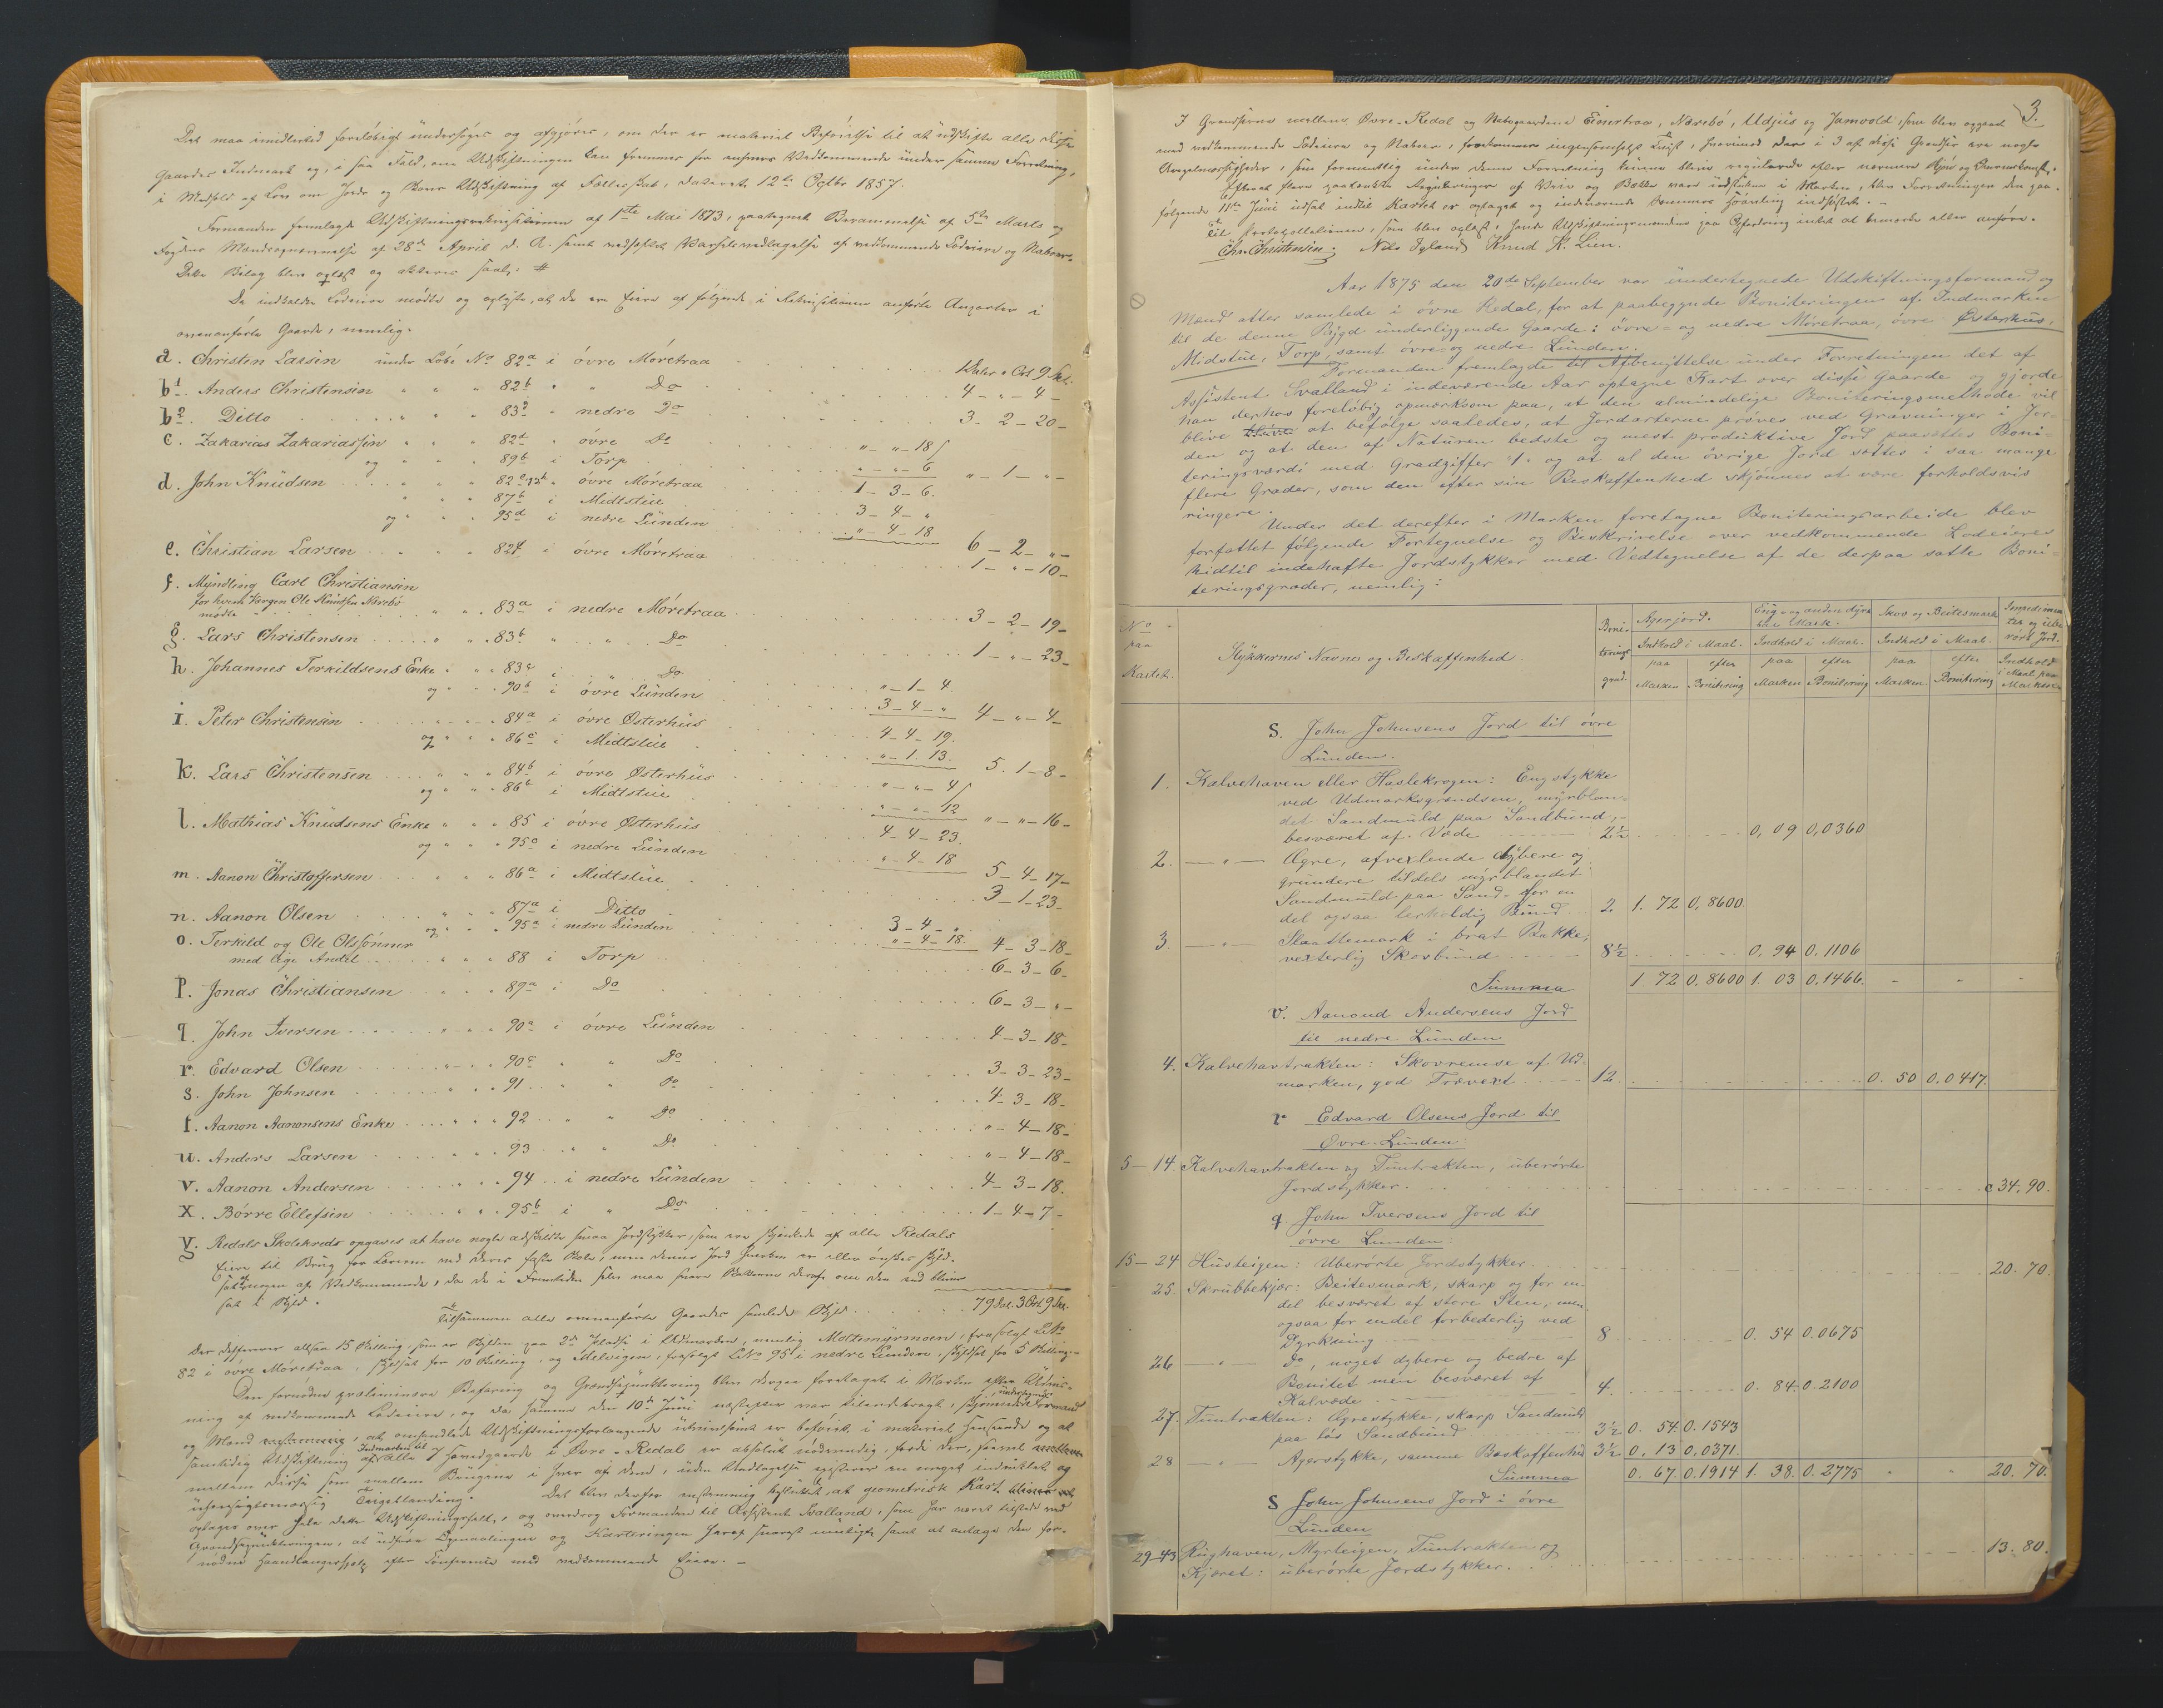 Det maa imidlertid foreløbigt undersøges og afgjøres, om der er materiel Beføielse til at udskifte alle disse
Gaardes Indmark og, i saa Fald, om Udskiftningen kan fremmes for enhver Vedkommende under samme Forretning,
i Medhold af Lov om Jords og Skovs Udskiftning af Fællesskab, dateret 12te Octbr 1857.
Formanden fremlagde Udskiftningsrekvisitionen af 1ste Mai 1873, paategnet Berammelse af 5te Marts og
Fogdens Mandsopnævnelse af 28de April d. A. samt vedheftet Varselsvedtagelse af vedkommende Lodeiere og Naboer.
Dette Bilag blev oplæst og akteres saal: #
De indkaldte Lodeiere mødte og oplyste, at de ere Eiere af følgende i Rekvisitionen anførte Anparter i
ovenanførte Gaarde, nemlig:
a. Christen Larsen under Løbe No 82a i øvre Møretraa 1 Daler " Ort 9 Skl.
b1. Anders Christensen " " " 82b " " Do 4 - " - 4 -
b2. Ditto " " " 83d " nedre Do 3 - 2 - 20 -
c. Zakarias Zakariassen " " " 82d " øvre Do " - " - 18
og " " " 89b i Torp " - " - 6 " - 1 - " -
d. John Knudsen 82 " øvre Møretraa 1 - 3 - 6.
" " " 87b i Midtstue 3 - 4 - "
og " " " 95d i nedre Lunden " - 4 - 18 6 - 2 - " -
e. Christian Larsen " " " 82f i øvre Møretraa 1 - " - 10 -
f. Myndling Carl Christiansen
for hvem Værgen Ole Knudsen Nærebø
mødte " " " 83a i nedre Møretraa 3 - 2 - 19 -
g. Lars Christensen " " " 83b " " Do 1 - " - 23 -
h. Johannes Terkildsens Enke " " " 83c i " Do " - 1 - 4
og " " " 90b i øvre Lunden 3 - 4 - " 4 - " - 4 -
i. Peter Christensen " " " 84a i øvre Østerhus 4 - 4 - 19.
og " " " 86c i Midtstue " - 1. 13. 5. 1 - 8 -
k. Lars Christensen " " " 84b i øvre Østerhus " - " - 4
og " " " 86b i Midtstue " - " - 12 " - " - 16 -
l. Mathias Knudsens Enke " " " 85 i øvre Østerhus 4 - 4 - 23.
og " " " 95c i nedre Lunden " - 4 - 18 5 - 4 - 17 -
m. Aanon Christoffersen " " " 86a i Midtstue 3 - 1 - 23 -
n. Aanon Olsen " " " 87a i Ditto 3 - 4 - "
og " " " 95a i nedre Lunden " - 4 - 18 4 - 3 - 18 -
o. Terkild og Ole Olssønner
med lige Andel " " " 88 i Torp 6 - 3 - 6 -
p. Jonas Christiansen " " " 89a i Do 6 - 3 - " -
q. John Iversen " " " 90a i øvre Lunden 4 - 3 - 18 -
r. Edvard Olsen " " " 90c " " Do 3 - 3 - 23 -
s. John Johnsen " " " 91 " " Do 4 - 3 - 18 -
t. Aanon Aanonsens Enke " " " 92 " " Do " - 4 - 18 -
u. Anders Larsen " " " 93 " " Do " - 4 - 18 -
v. Aanon Andersen " " " 94 i nedre Lunden 4 - 3 - 18.
x. Børre Ellefsen " " " 95b i " Do 1 - 4 - 7 -
y. Redals Skolekreds opgaves at have nogle adskilte smaa Jordstykker, som ere skjænkede af alle Redals
Eiere til Brug for Læreren ved deres faste Skole, men denne Jord hverken er eller ønskes skyld-
sat af nogen af Vedkommende, da de i Fremtiden selv maa svare Skatterne deraf, om den end bliver
sat i Skyld.
Tilsammen alle ovenanførte Gaardes samlede Skyld 79 Dal. 3 Ort 9 Skl.
Der differerer altsaa 15 Skilling, som er Skylden paa 2de Pladse i Udmarken, nemlig Moltemyrmoen, frasolgt L.No
82 i øvre Møretraa, skyldsat for 10 Skilling, og Melvigen, frasolgt L.No 95 i nedre Lunden, skyldsat for 5 Skilling.
Den fornødne præliminære Befaring og Grændsepunktering blev derpaa foretaget i Marken efter Udvis-
ning af vedkommende Lodeiere, og da samme den 10de Juni næstefter var tilendebragt, skjønnede undertegnede Formand
og Mænd, at omhandlede Udskiftningsforlangende er beføiet i materiel Henseende og at
samtidig Udskiftning af Indmarken til alle 7 Hovedgaarde i Øvre-Redal er absolut nødvendig, fordi der, saavel
mellem disse som mellem Brugene i hver af dem, uden Undtagelse existerer en meget indviklet og
uhensigtsmæssig Teigeblanding. Det blev derfor enstemmig besluttet, at geometrisk Kart
optages over hele dette Udskiftningsfelt, og overdrog Formanden til Assistent Svalland, som har været tilstede ved
Grændsepunkteringen, at udføre Opmaalingen og Karteringen heraf snarest muligt, samt at antage den for-
nødne Haandlangerhjelp efter Conference med vedkommende Eiere. -
3.
I Grændserne mellem Øvre-Redal og Nabogaardene Eimertraa, Nærebø, Udjus og Jamvold, som blev opgaaet
med vedkommende Lodeiere og Naboer, forekommer ingensomhelst Tvist, hvorimod der i 3 af disse Grændser ere nogle
Uregelmæssigheder, som formentlig under denne Forretning kunne blive regulerede efter nærmere Skjøn og Overenskomst.
Efterat flere paatænkte Reguleringer af Veie og Bække vare udstukne i Marken, blev Forretningen den paa-
følgende 11te Juni udsat indtil Kartet er optaget og indeværende Sommers Høavling indhøstet. -
Til Protokollationen, som blev oplæst, havde Udskiftningsmændene paa Opfordring intet at bemærke eller anføre.
Chr. Christensen. Nils Igland Knud K. Lien.
Aar 1875 den 20de September var undertegnede Udskiftningsformand og
Mænd atter samlede i øvre Redal, for at paabegynde Boniteringen af Indmarken
til de denne Bygd underliggende Gaarde: øvre- og nedre Møretraa, øvre Østerhus,
Midstue, Torp, samt øvre- og nedre Lunden.
Formanden fremlagde til Afbenyttelse under Forretningen det af
Assistent Svalland i indeværende Aar optagne Kart over disse Gaarde og gjorde
han derhos foreløbig opmærksom paa, at den almindelige Boniteringsmethode vil
blive at befølge saaledes, at Jordarterne prøves ved Gravninger i Jor-
den og at den af Naturen bedste og mest produktive Jord paasættes Boni-
teringsværdi med Gradziffer "1" og at al den øvrige Jord sættes i saa mange
flere Grader, som den efter sin Beskaffenhed skjønnes at være forholdsvis
ringere.
Under det derefter i Marken foretagne Boniteringsarbeide blev
forfattet følgende Fortegnelse og Beskrivelse over vedkommende Lodeieres
hidtil indehafte Jordstykker med Vedtegnelse af de derpaa satte Boni-
teringsgrader, nemlig:
No paa Kartet. Stykkernes Navne og Beskaffenhed. Boni-terings grad. Agerjord. Eng- og anden dyrkbar Mark. Skov og Beitesmark
Indhold i Maal. Indhold i Maal. Indhold i Maal. Indhold i Maal paa Marken
paa Marken efter Bonitering paa Marken efter Bonitering paa Marken efter Bonitering
s. John Johnsens Jord til øvre
Lunden.
1. Kalvehaven eller Haslekrogen: Engstykke
ved Udmarksgrændsen, myrblan-
det Sandmuld paa Sandbund,
besværet af Væde 2½ 0,09 0,0360
2. - " - Agre, afvexlende dybere og
grundere tildels myrblandet
Sandmuld paa Sand- for en
del ogsaa lerholdig Bund 2 1.72 0,8600
3. - " - Slaattemark i brat Bakke,
vexterlig Skovbund 8½ 0,94 0.1106
Summa 1 72 0.8600 1. 03 0.1466. - - -
v. Aanond Andersens Jord
til nedre Lunden
4. Kalvehavtrakten: Skovremse af Ud-
marken, god Trævext 12 0. 50 0.0417.
r Edvard Olsens Jord til
Øvre-Lunden.
5-14. Kalvehavtrakten og Tuntrakten, uberørte
Jordstykker. c 34.90.
q John Iversens Jord til
øvre Lunden.
15-24 Husteigen: Uberørte Jordstykker. 20.70.
25. Skrubbekjær: Beitesmark, skarp og for en
del besværet af store Sten, men
ogsaa for endel forbederlig ved
Dyrkning 8 0. 54 0.0675
26 - " - Do, noget dybere og bedre af
Bonitet men besværet af
Kalvæde 4. 0. 84. 0.2100
27. Tuntrakten: Agrestykke, skarp Sandmuld
paa løs Sandbund 3½ 0. 54. 0.1543
28 - " - Agerstykke, samme Beskaffenhed 3½ 0. 13 0,0371.
Summa 0. 67. 0.1914 1. 38. 0.2775 " " 20. 70.
s John Johnsens Jord i øvre
Lunden
29-43 Rughaven, Myrteigen, Tuntrakten og
Kjæret: uberørte Jordstykker. 13. 80.